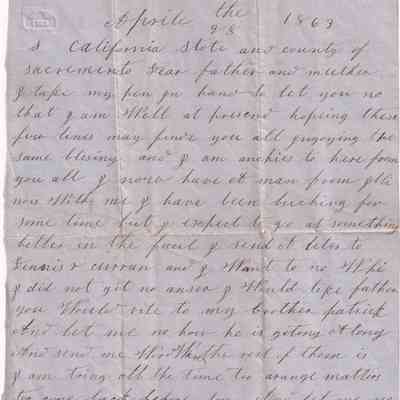 Aprile the 28 1863
S California State and county of
sacremento Dear father and mother
I take my pen in hand to let you no
that I am Well at presend hopeing these
few lines may finde you all injoying the
same blesing and I am anxies to here from
you all I now have at man from
now With me I have been buching for
some time but I expect to go at something
better in the faul I send at leter to
Dennis curran and I Want to no Whi
I did not git no anser I Would like father
you Would rite to my brother patrick
And let me no how he is giting along
And send me Word Whare the rest of them is
I am triing all the time too arange matters